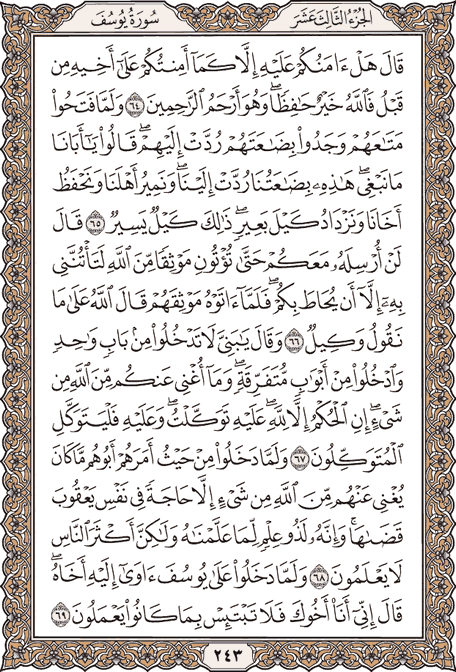 الجزء الثالث عشر
سورة يوسف
قَالَ هَلْ ءَامَنُكُمْ عَلَيْهِ إِلَّا كَمَآ أَمِنتُكُمْ عَلَىٰٓ أَخِيهِ مِن
قَبْلُ فَٱللَّهُ خَيْرٌ حَٰفِظًا ۖ وَهُوَ أَرْحَمُ ٱلرَّٰحِمِينَ ٦٤ وَلَمَّا فَتَحُوا۟
مَتَٰعَهُمْ وَجَدُوا۟ بِضَٰعَتَهُمْ رُدَّتْ إِلَيْهِمْ ۖ قَالُوا۟ يَٰٓأَبَانَا
مَا نَبْغِى ۖ هَٰذِهِۦ بِضَٰعَتُنَا رُدَّتْ إِلَيْنَا ۖ وَنَمِيرُ أَهْلَنَا وَنَحْفَظُ
أَخَانَا وَنَزْدَادُ كَيْلَ بَعِيرٍ ۖ ذَٰلِكَ كَيْلٌ يَسِيرٌ ٦٥ قَالَ
لَنْ أُرْسِلَهُۥ مَعَكُمْ حَتَّىٰ تُؤْتُونِ مَوْثِقًا مِّنَ ٱللَّهِ لَتَأْتُنَّنِى
بِهِۦٓ إِلَّآ أَن يُحَاطَ بِكُمْ ۖ فَلَمَّآ ءَاتَوْهُ مَوْثِقَهُمْ قَالَ ٱللَّهُ عَلَىٰ مَا
نَقُولُ وَكِيلٌ ٦٦ وَقَالَ يَٰبَنِىَّ لَا تَدْخُلُوا۟ مِنۢ بَابٍ وَٰحِدٍ
وَٱدْخُلُوا۟ مِنْ أَبْوَٰبٍ مُّتَفَرِّقَةٍ ۖ وَمَآ أُغْنِى عَنكُم مِّنَ ٱللَّهِ مِن
شَىْءٍ ۖ إِنِ ٱلْحُكْمُ إِلَّا لِلَّهِ ۖ عَلَيْهِ تَوَكَّلْتُ ۖ وَعَلَيْهِ فَلْيَتَوَكَّلِ
ٱلْمُتَوَكِّلُونَ ٦٧ وَلَمَّا دَخَلُوا۟ مِنْ حَيْثُ أَمَرَهُمْ أَبُوهُم مَّا كَانَ
يُغْنِى عَنْهُم مِّنَ ٱللَّهِ مِن شَىْءٍ إِلَّا حَاجَةً فِى نَفْسِ يَعْقُوبَ
قَضَىٰهَا ۚ وَإِنَّهُۥ لَذُو عِلْمٍ لِّمَا عَلَّمْنَٰهُ وَلَٰكِنَّ أَكْثَرَ ٱلنَّاسِ
لَا يَعْلَمُونَ ٦٨ وَلَمَّا دَخَلُوا۟ عَلَىٰ يُوسُفَ ءَاوَىٰٓ إِلَيْهِ أَخَاهُ ۖ
قَالَ إِنِّىٓ أَنَا۠ أَخُوكَ فَلَا تَبْتَئِسْ بِمَا كَانُوا۟ يَعْمَلُونَ ٦٩
٢٤٣